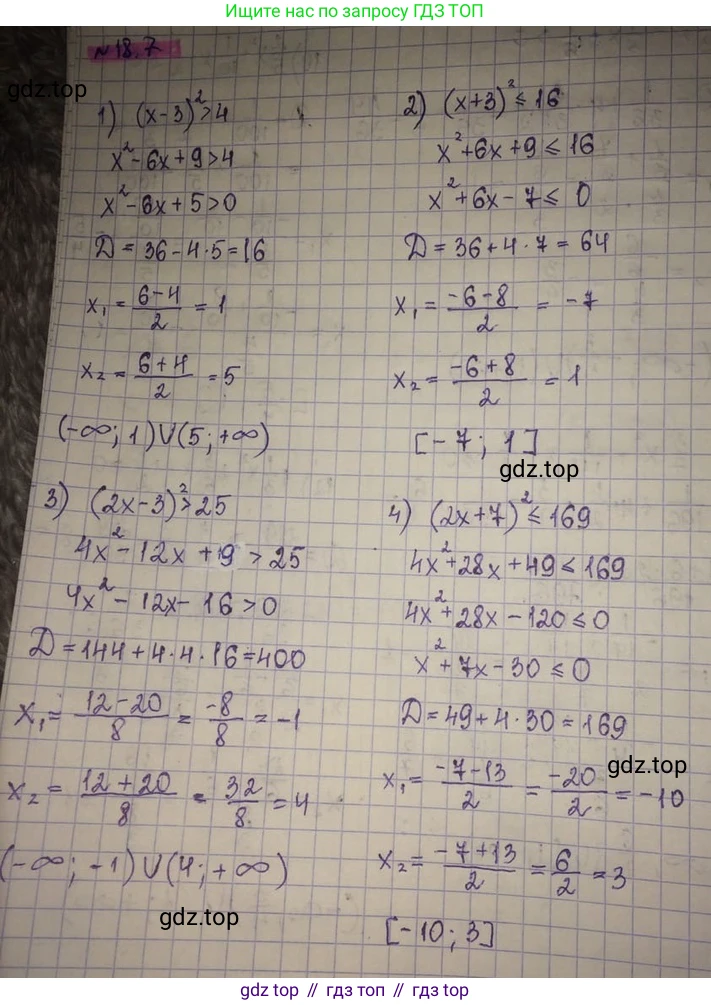 Ищите нас по запросу ГДЗ ТОП
№18.7
gdz.top
1) (x-3)²>4
x²-6x+9>4
x²-6x+5>0
Д=36-4·5=16
x₁=(6-4)/2=1
x₂=(6+4)/2=5
(-∞; 1)∪(5; +∞)
2) (x+3)²≤16
x²+6x+9≤16
x²+6x-7≤0
Д=36+4·7=64
x₁=(-6-8)/2=-7
x₂=(-6+8)/2=1
[-7; 1]
gdz.top
3) (2x-3)²>25
4x²-12x+9>25
4x²-12x-16>0
Д=144+4·4·16=400
x₁=(12-20)/8=-8/8=-1
x₂=(12+20)/8=32/8=4
(-∞; -1)∪(4; +∞)
gdz.top
4) (2x+7)²≤169
4x²+28x+49≤169
4x²+28x-120≤0
x²+7x-30≤0
Д=49+4·30=169
gdz.top
x₁=(-7-13)/2=-20/2=-10
x₂=(-7+13)/2=6/2=3
[-10; 3]
gdz.top // гдз топ // gdz top // гдз.top